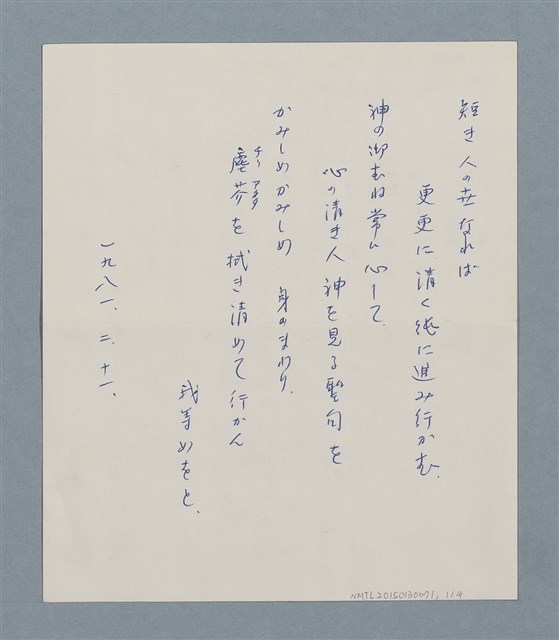 短き人の世なれば
更更に清く純に進み行かむ、
神の御むね常に心して、
心の清き人神を見る聖句を
かみしめかみしめ 身のまわり、
塵芥を拭き清めて行かん
チリ アクタ
我等めをと、
一九八一、二、十一、
NMTL20150130071, 1/4